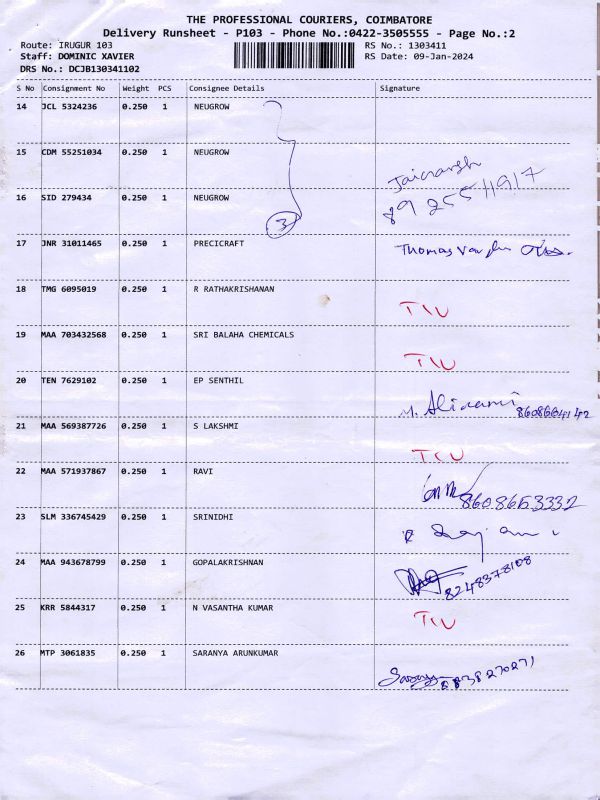 THE PROFESSIONAL COURIERS, COIMBATORE
Delivery Runsheet - P103 - Phone No.:0422-3505555 - Page No.:2
Route: IRUGUR 103 RS No.: 1303411
Staff: DOMINIC XAVIER RS Date: 09-Jan-2024
DRS No.: DCJB130341102
S No Consignment No Weight PCS Consignee Details Signature
14 JCL 5324236 0.250 1 NEUGROW
15 CDM 55251034 0.250 1 NEUGROW
16 SID 279434 0.250 1 NEUGROW
3
17 JNR 31011465 0.250 1 PRECICRAFT Thomas
18 TMG 6095019 0.250 1 R RATHAKRISHANAN
19 MAA 703432568 0.250 1 SRI BALAHA CHEMICALS
20 TEN 7629102 0.250 1 EP SENTHIL
21 MAA 569387726 0.250 1 S LAKSHMI
22 MAA 571937867 0.250 1 RAVI 8608653332
23 SLM 336745429 0.250 1 SRINIDHI
24 MAA 943678799 0.250 1 GOPALAKRISHNAN 8248378108
25 KRR 5844317 0.250 1 N VASANTHA KUMAR
26 MTP 3061835 0.250 1 SARANYA ARUNKUMAR